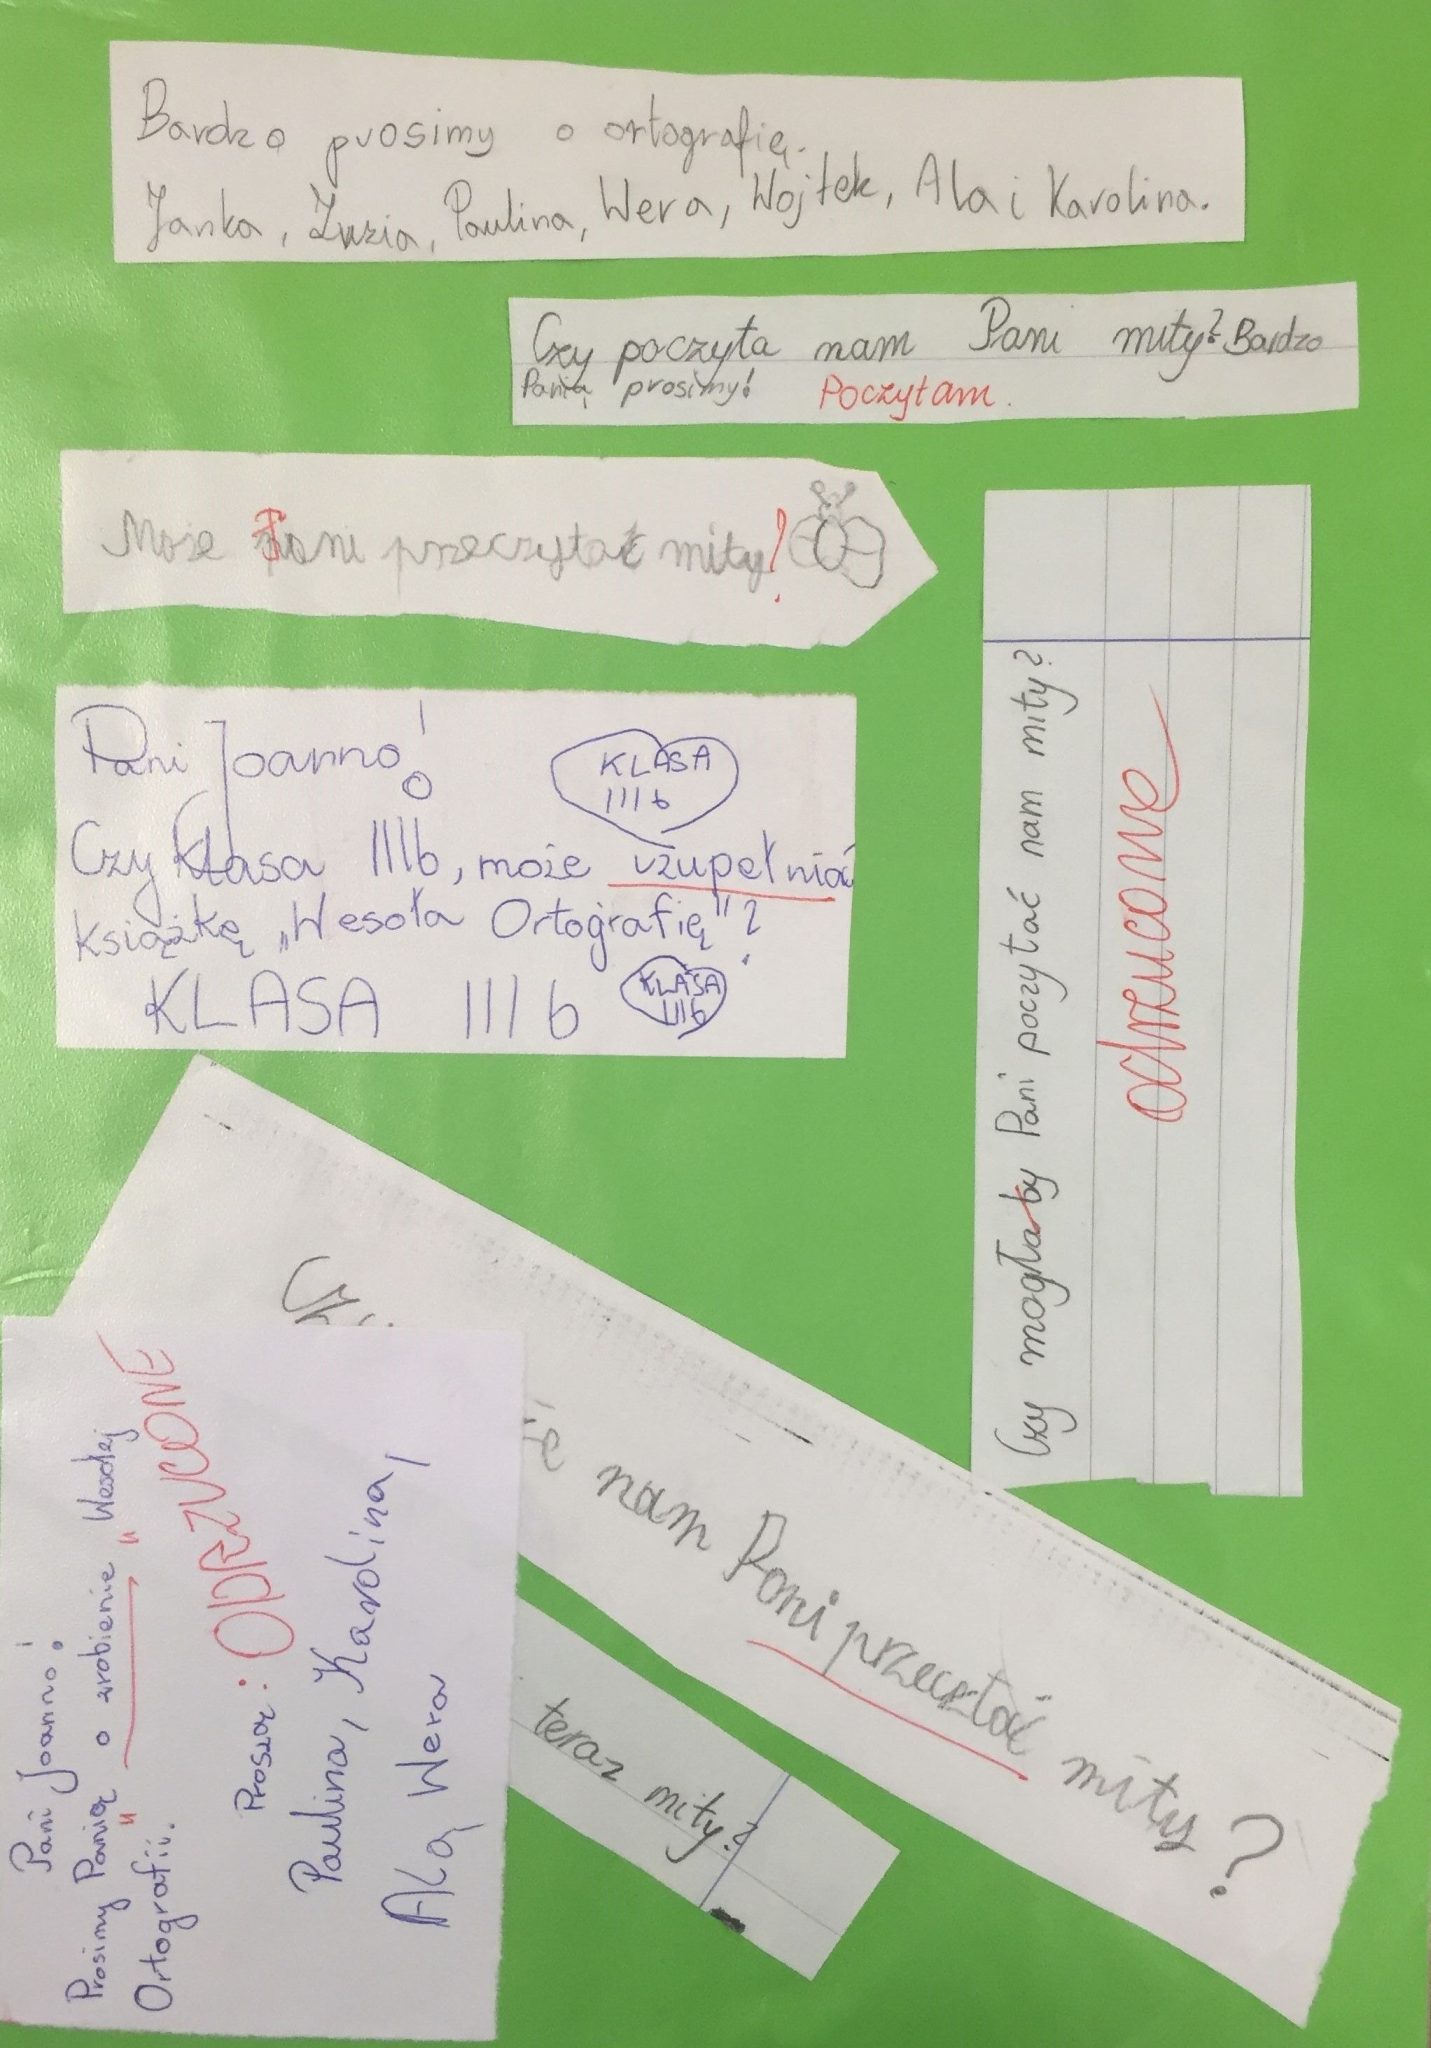 Bardzo prosimy o ortografię.
Janka, Zuzia, Paulina, Wera, Wojtek, Ala i Karolina.
Czy poczyta nam Pani mity? Bardzo
Panią prosimy! Poczytam.
Może Pani przeczytać mity?
Pani Joanno!
KLASA
III b
Czy klasa IIIb, może uzupełniać
książkę „Wesoła Ortografię"?
KLASA III b
KLASA
IIIb
Czy mogłaby Pani poczytać nam mity?
odrzucone
nam Pani przecztać mity?
teraz mity?
Pani Joanno!
Prosimy Panią o zrobienie „Wesołej
Ortografii.
Proszą: ODRZUCONE
Paulina, Karolina,
Ala, Wera